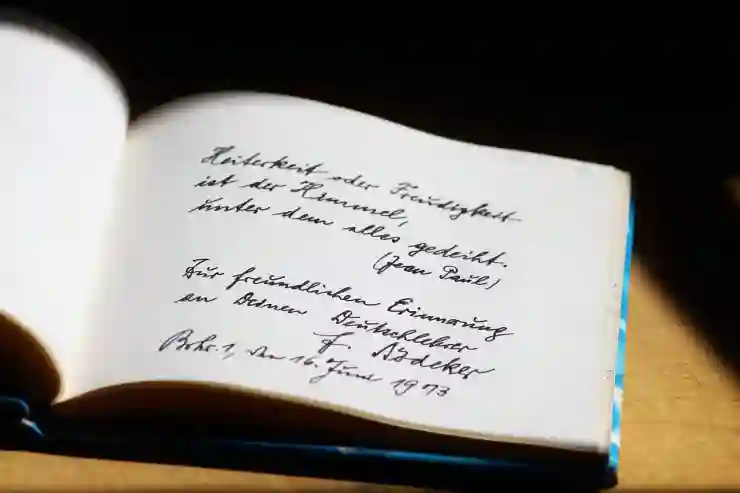 Heiterkeit oder Freudigkeit
ist der Himmel,
unter dem alles gedeiht.
(Jean Paul)
Zur freundlichen Erinnerung
an Deinen Deutschlehrer
F. Bödeker
Bohr. 1, den 16. Juni 1973